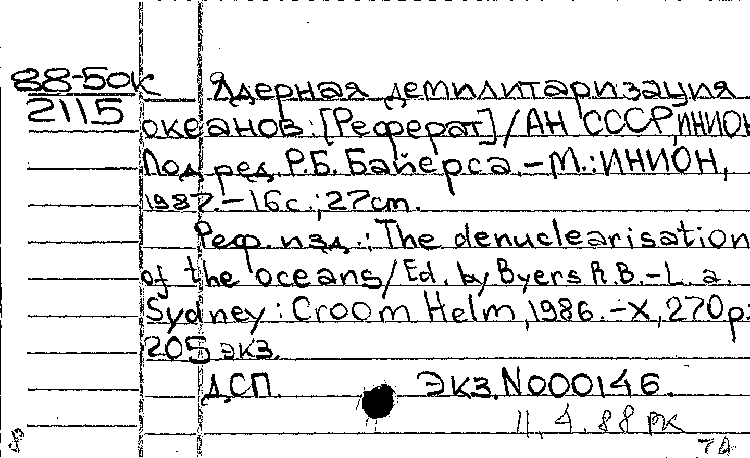 88-50к
2115
Ядерная демилитаризация
океанов: [Реферат]/АН СССР, ИНИОН
Под ред. Р.Б. Байерса.-М.: ИНИОН,
1987.-16с.; 27cm.
Реф. изд.: The denuclearisation
of the oceans/Ed. by Byers R.B.-L. a.
Sydney: Croom Helm, 1986.-X, 270p.
205 экз.
ДСП. Экз. N000146.
11.4.88 РК